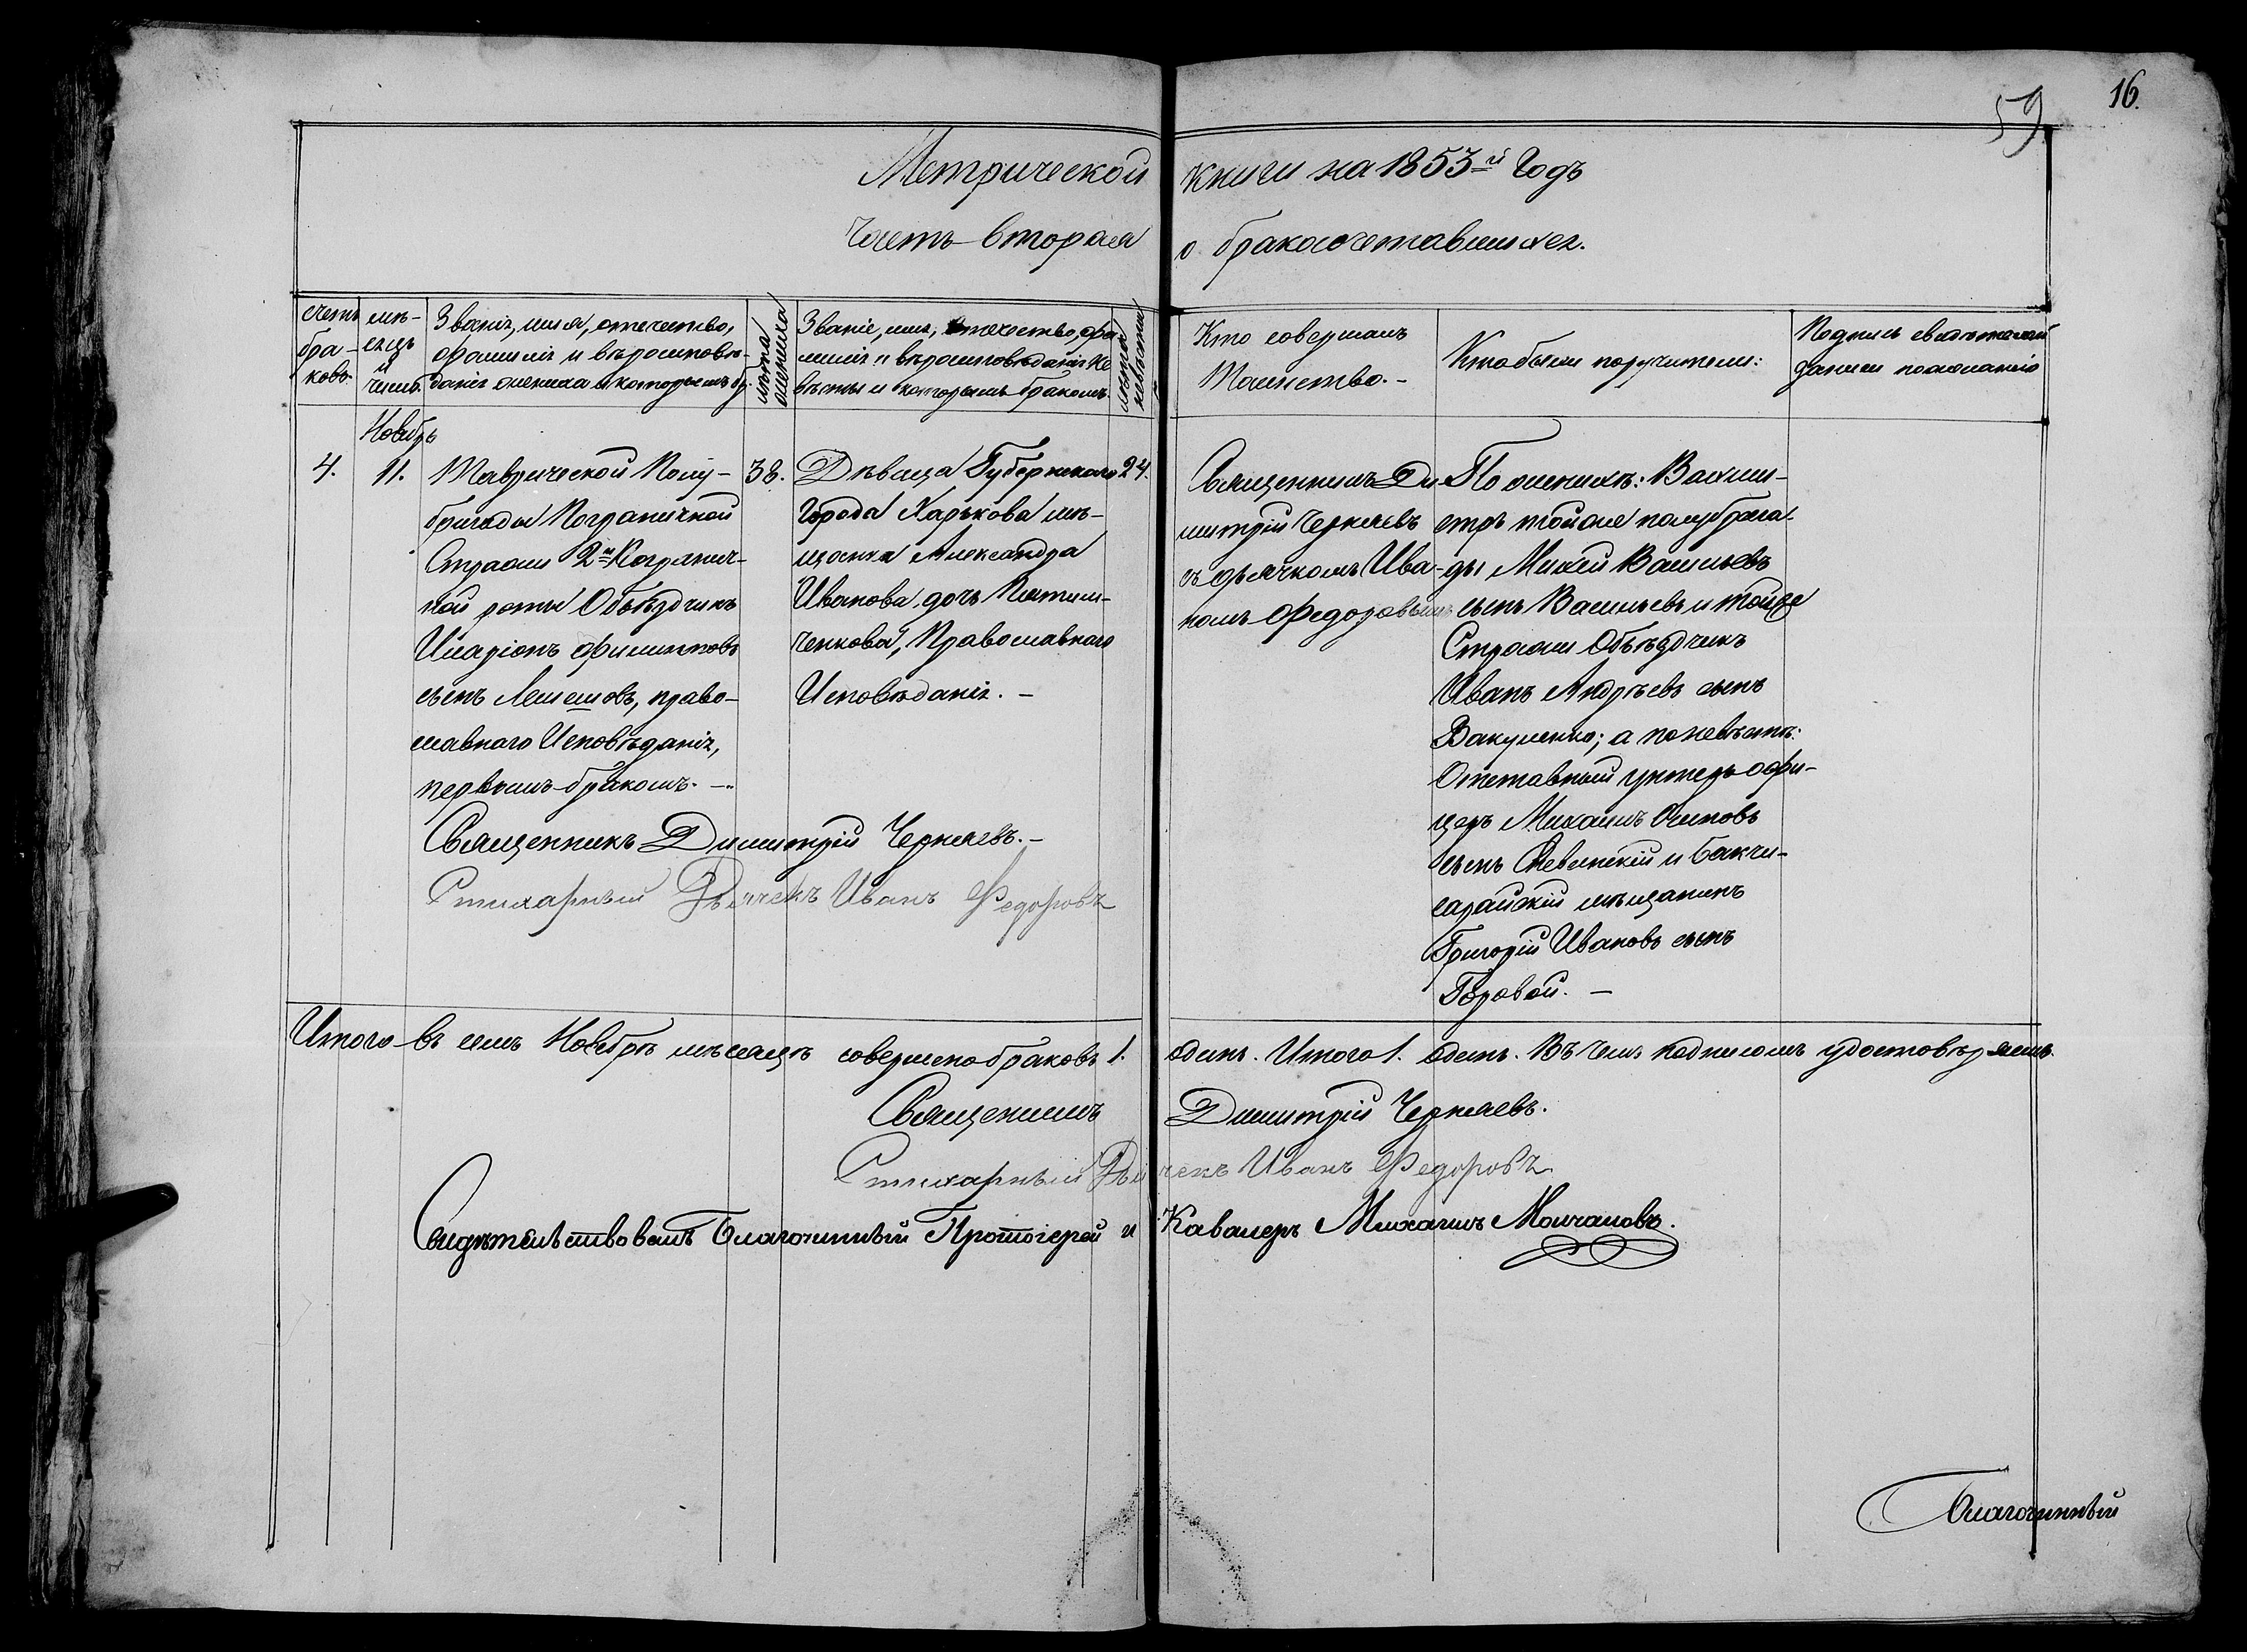 16.
59.
Метрической книги на 1853й Годъ
Часть вторая о бракосочетавшихся.
счетъ бра-ковъ.
мѣ-сяцъ и число.
Званіе, имя, отечество,
фамилія и вѣроисповѣ-
даніе жениха и которымъ бр.
лѣта жениха
Званіе, имя, отечество, фа
милія и вѣроисповѣданіе не
вѣсты и которымъ бракомъ.
лѣта невѣсты
Кто совершалъ
Таинство. -
Кто были поручители:
Подпись свидѣтелей
записи по желанію
Ноябрь
4.
11.
Таврической Полу-
бригады Пограничной
Стражи 2й Погранич-
ной роты Объѣздчикъ
Иларіонъ Филиповъ
сынъ Лемешовъ, право-
славнаго Исповѣданія,
первымъ бракомъ. -
38.
Дѣвица Губернскаго
Города Харькова мѣ-
щанка Александра
Иванова дочь
ченкова, Православнаго
Исповѣданія. -
24.
Священникъ Ди-
митрій Черняевъ
съ дьячкомъ Ива-
номъ Федоровымъ
По женихѣ: Вахми-
стръ той же полубрига-
ды Михей Васильевъ
сынъ Васильевъ и той же
Стражи Объѣздчикъ
Иванъ Андрѣевъ сынъ
Вакуленко; а по невѣстѣ:
Отставный унтеръ офи-
церъ Михаилъ Осиповъ
сынъ и Бакчи-
сарайскій мѣщанинъ
Григорій Ивановъ сынъ
Боровой. -
Священникъ Димитрій Черняевъ. -
Стихарный Дьячекъ Иванъ Федоровъ
Итого въ семъ Ноябрѣ мѣсяцѣ совершено браковъ 1. одинъ. Итого 1. одинъ. Въ чемъ подписомъ удостовѣряемъ.
Священникъ Димитрій Черняевъ.
Стихарный Дьячекъ Иванъ Федоровъ
Свидѣтельствовалъ Благочинный Протоіерей и Кавалеръ Михаилъ Молчановъ.
Благочинный